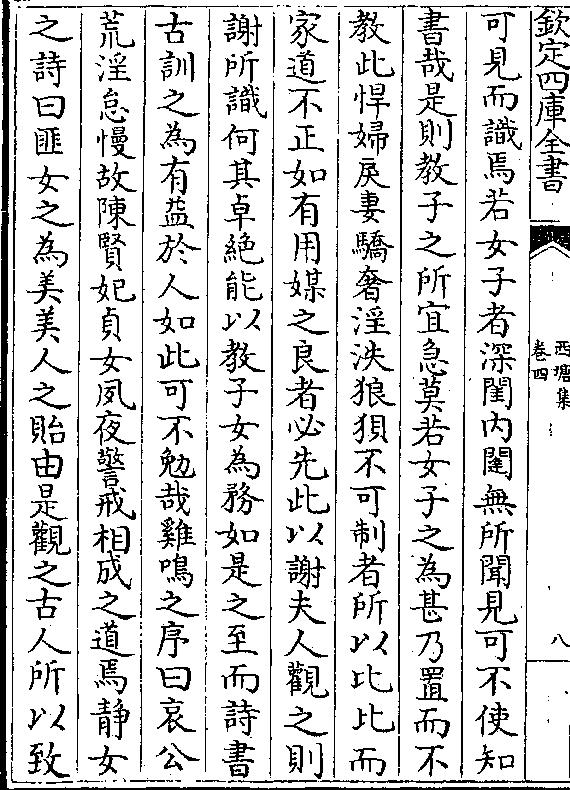 欽定四庫全書
西塘集
卷四
八
可見而識焉若女子者深閨内闥無所聞見可不使知
書哉是則教子之所宜急莫若女子之為甚乃置而不
教此悍婦戾妻驕奢淫泆狼狽不可制者所以比比而
家道不正如有用媒之良者必先此以謝夫人觀之則
謝所識何其卓絶能以教子女為務如是之至而詩書
古訓之為有益於人如此可不勉哉雞鳴之序曰哀公
荒淫怠慢故陳賢妃貞女夙夜警戒相成之道焉静女
之詩曰匪女之為美美人之貽由是觀之古人所以致